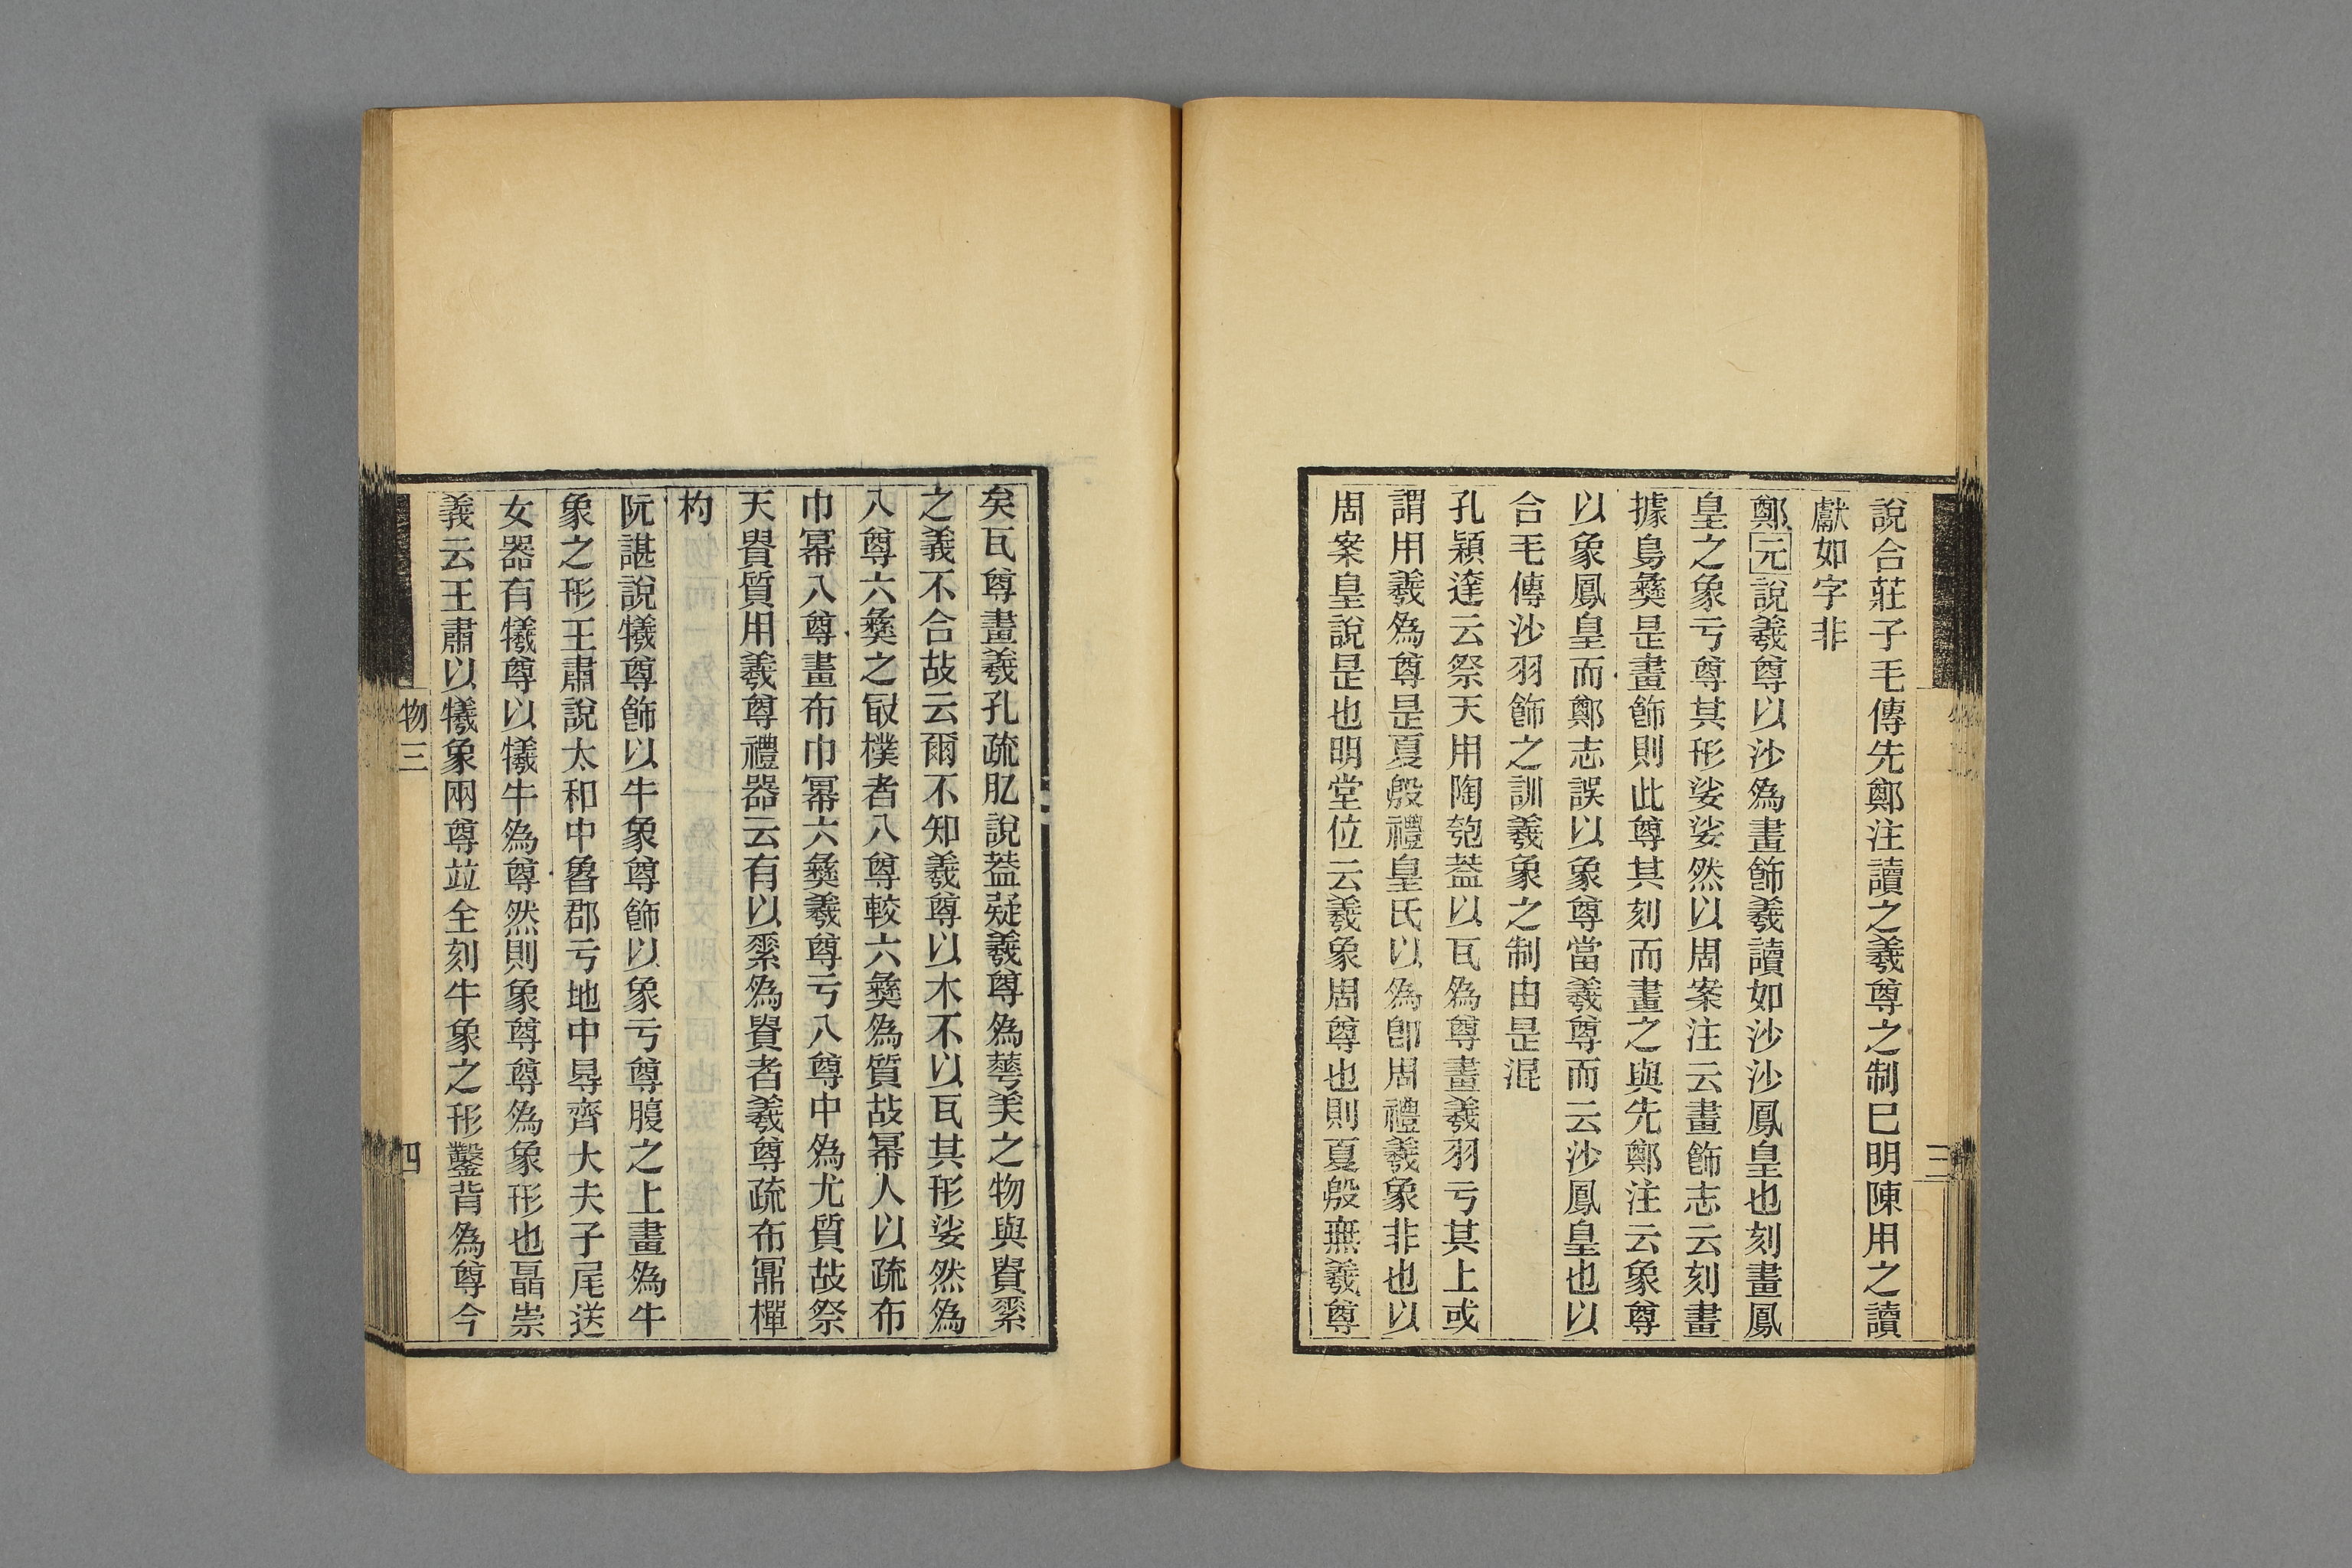 說合莊子毛傳先鄭注讀之羲尊之制巳明陳用之讀
獻如字非
鄭元說羲尊以沙為畫飾羲讀如沙沙鳳皇也刻畫鳳
皇之象亏尊其形娑娑然以周案注云畫飾志云刻畫
據鳥彝是畫飾則此尊其刻而畫之與先鄭注云象尊
以象鳳皇而鄭志誤以象尊當羲尊而云沙鳳皇也以
合毛傳沙羽飾之訓羲象之制由是混
孔穎達云祭天用陶匏葢以瓦為尊畫羲羽亏其上或
謂用羲為尊是夏殷禮皇氏以為卽周禮羲象非也以
周案皇說是也明堂位云羲象周尊也則夏殷無羲尊
三
矣瓦尊畫羲孔疏肊說葢疑羲尊為蕚美之物與貴素
之義不合故云爾不知羲尊以木不以瓦其形娑然為
八尊六彝之冣樸者八尊較六彝為質故冪人以疏布
巾冪八尊畫布巾冪六彝羲尊亏八尊中為尤質故祭
天貴質用羲尊禮器云有以素為貴者羲尊疏布鼏樿
杓
阮諶說犧尊飾以牛象尊飾以象亏尊腹之上畫為牛
象之形王肅說太和中魯郡亏地中㝵齊大夫子尾送
女器有犧尊以犧牛為尊然則象尊尊為象形也聶崇
義云王肅以犧象兩尊竝全刻牛象之形鑿背為尊今
物三
四